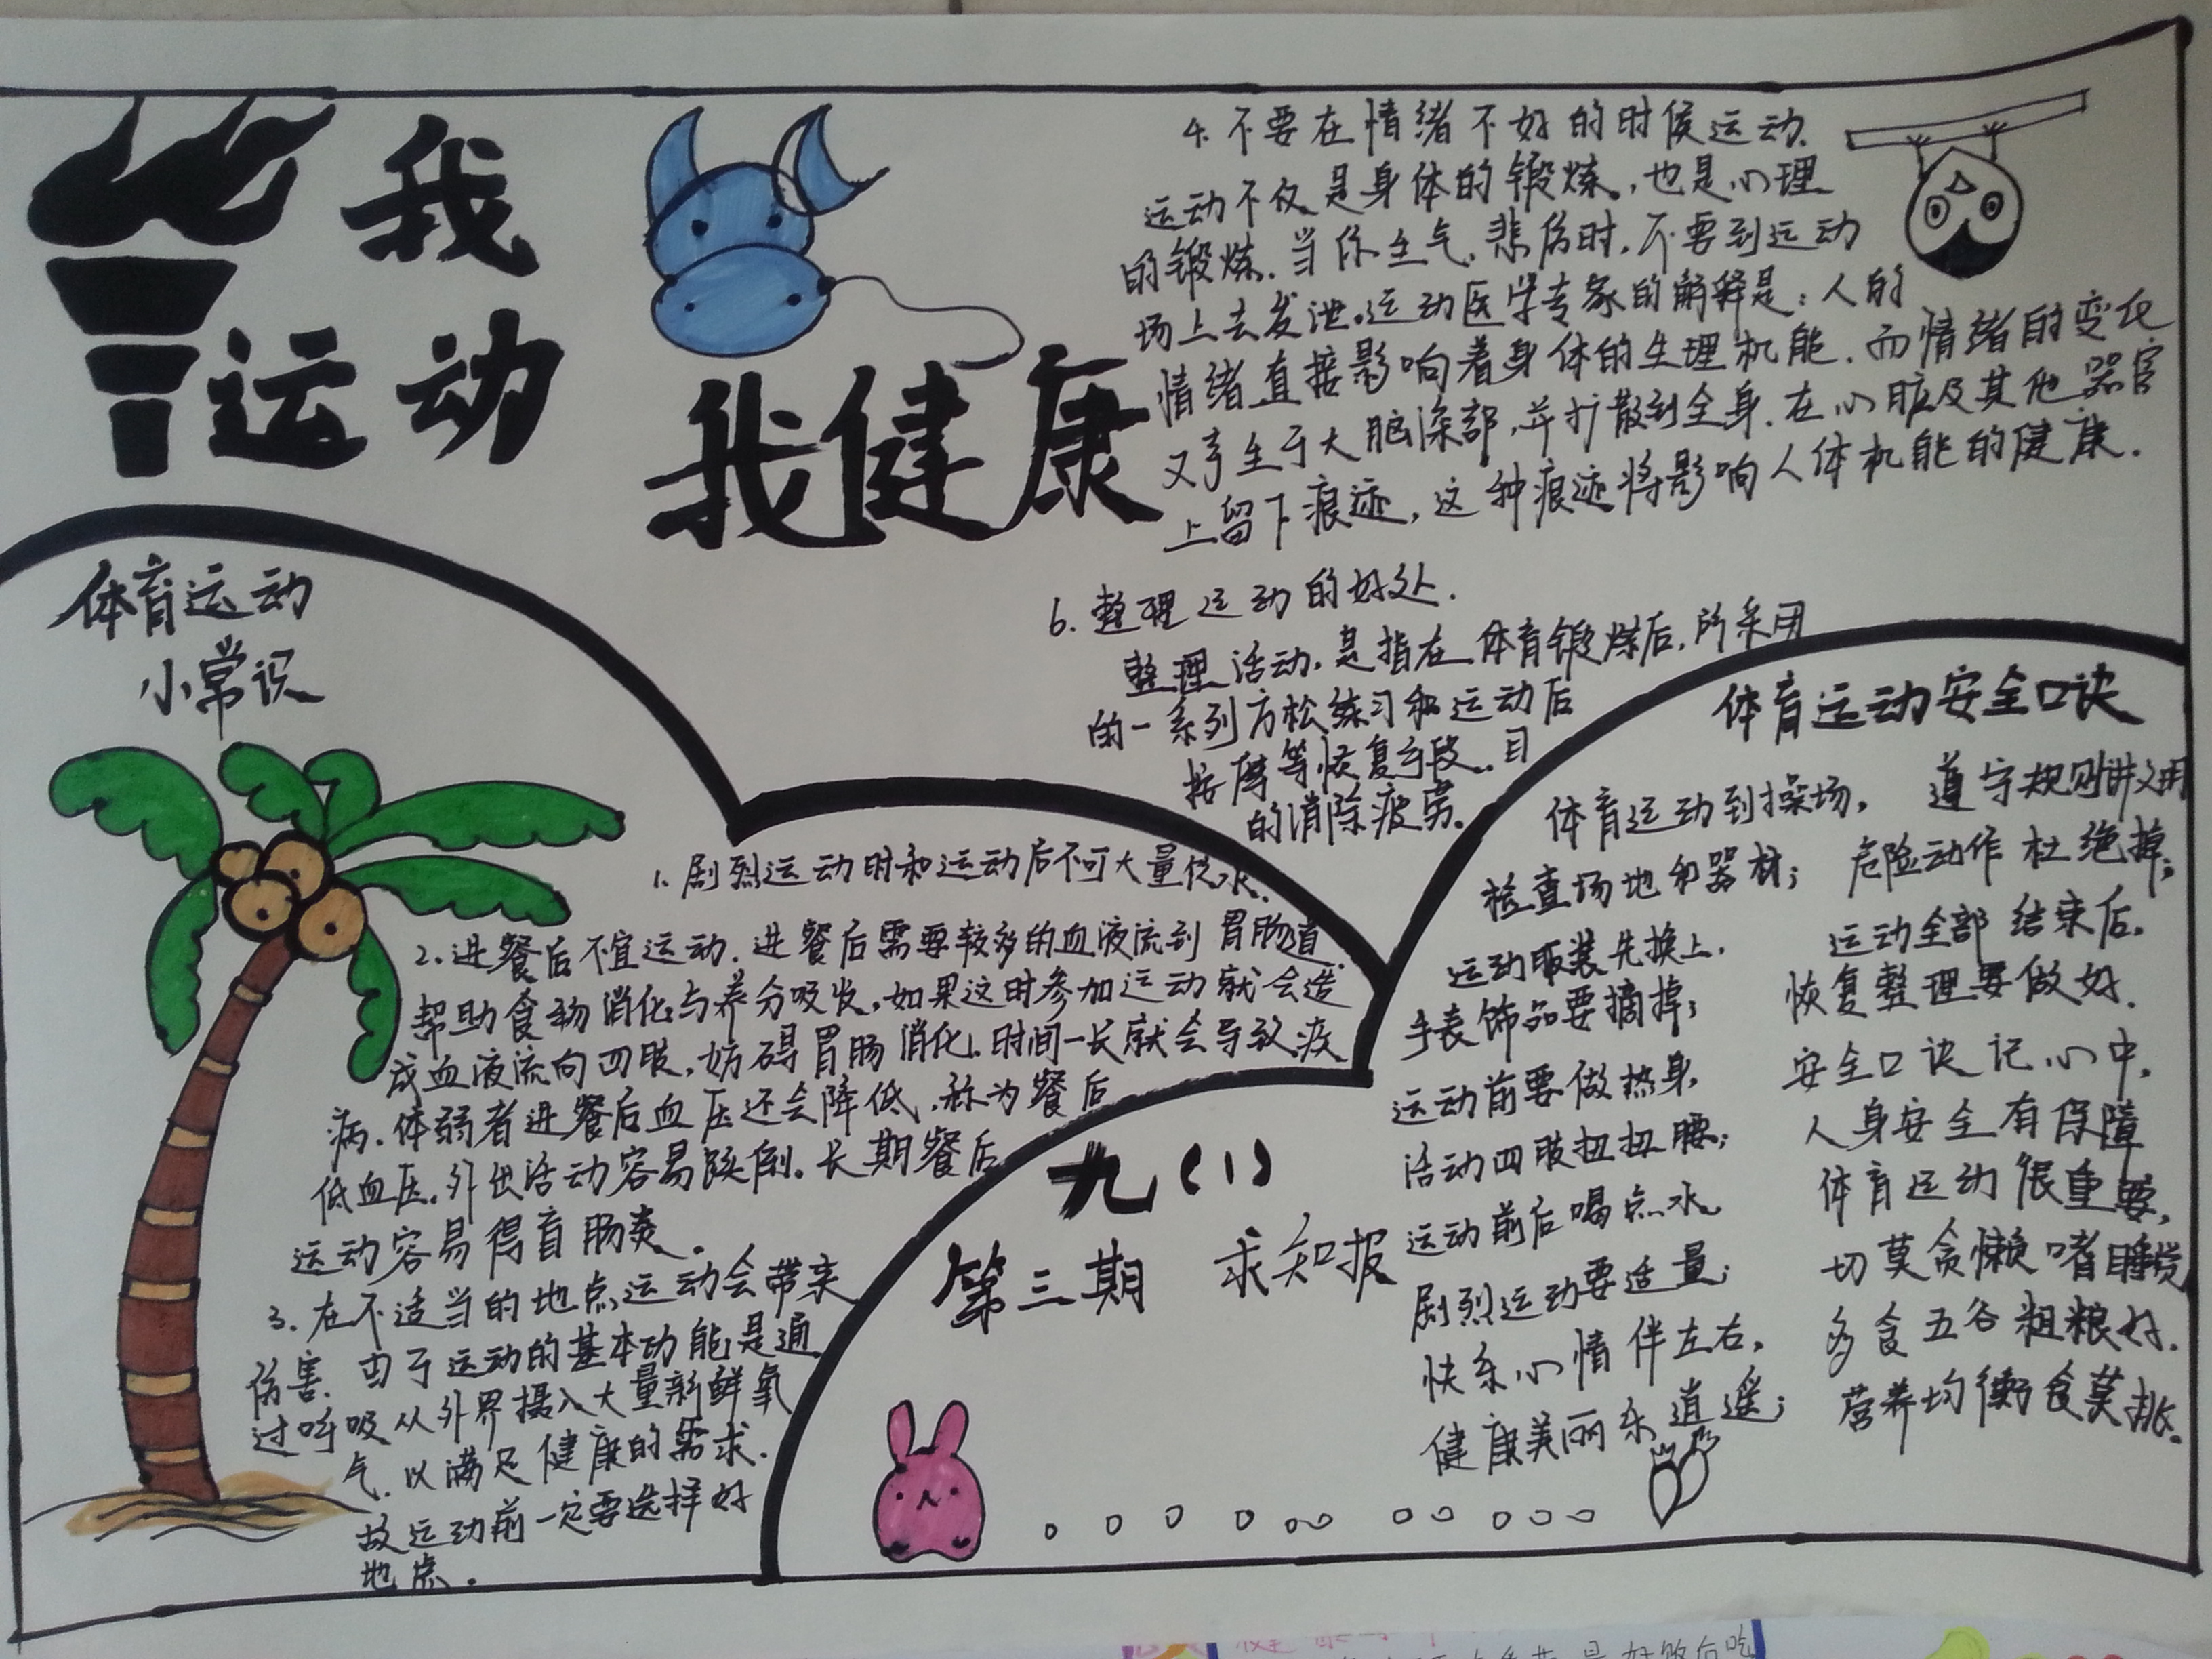 我
运动
我健康
4.不要在情绪不好的时候运动.
运动不仅是身体的锻炼.,也是心理
的锻炼.当你生气.悲伤时.不要到运动
场上去发泄。运动医学专家的解释是:人的
情绪直接影响着身体的生理机能.而情绪的变化
又产生于大脑深部,并扩散到全身.在心脏及其他器官
上留下痕迹,这种痕迹将影响人体机能的健康.
6.整理运动的好处.
整理活动.是指在体育锻炼后.所采用
的一系列方松练习和运动后
按摩等恢复手段.目
的消除疲劳。
体育运动
小常识
1.剧烈运动时和运动后不可大量饮水.
2.进餐后不宜运动.进餐后需要较多的血液流到胃肠道.
帮助食物消化与养分吸收,如果这时参加运动就会造
成血液流向四肢,妨碍胃肠消化.时间一长就会导致疾
病.体弱者进餐后血压还会降低.称为餐后
低血压.外出活动容易跌倒。长期餐后
运动容易得盲肠炎。
3.在不适当的地点运动会带来
伤害.由于运动的基本功能是通
过呼吸从外界摄入大量新鲜氧
气.以满足健康的需求.
故运动前一定要选择好
地点。
九(1)
第三期 求知报
体育运动安全口诀
体育运动到操场。
检查场地和器材;
运动服装先换上.
手表饰品要摘掉;
运动前要做热身.
活动四肢扭扭腰;
运动前后喝点水.
剧烈运动要适量;
快乐心情伴左右.
健康美丽乐逍遥;
遵守规则讲文明
危险动作杜绝掉;
运动全部结束后.
恢复整理要做好.
安全口诀记心中.
人身安全有保障
体育运动很重要,
切莫贪懒嗜睡觉
多食五谷粗粮好.
营养均衡食莫挑.